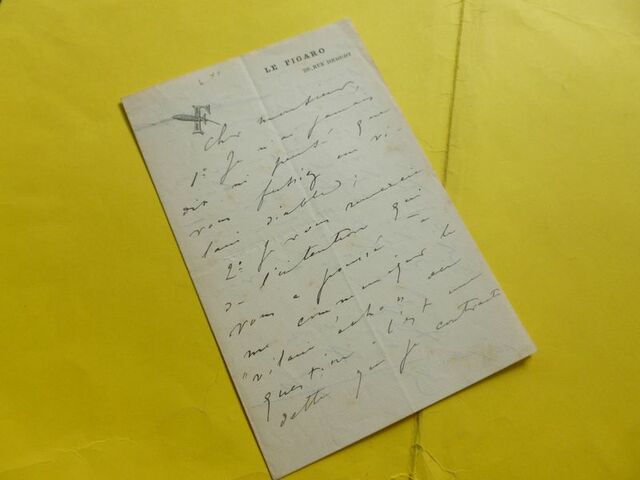 LE FIGARO
26, RUE DROUOT
F
Cher monsieur,
1º Je n'ai jamais
dit ni pensé que
vous fussiez un vi-
lain diable;
2º Je vous remercie
de l'intention qui
vous a poussé à
me communiquer le
"vilain écho" en
question. C'est une
dette que je contracte